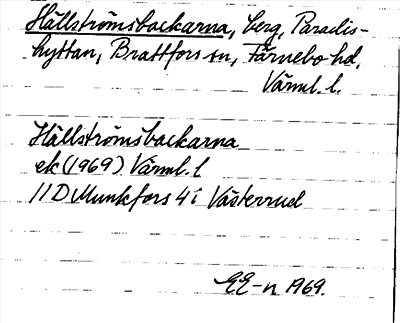 Hällströmsbackarna, berg, Paradis-
hyttan, Brattfors sn, Färnebo hd,
Värml. l.
Hällströmsbackarna
ek (1969) Värml. l
11D Munkfors 4i Västerrud
E.E-n 1969.